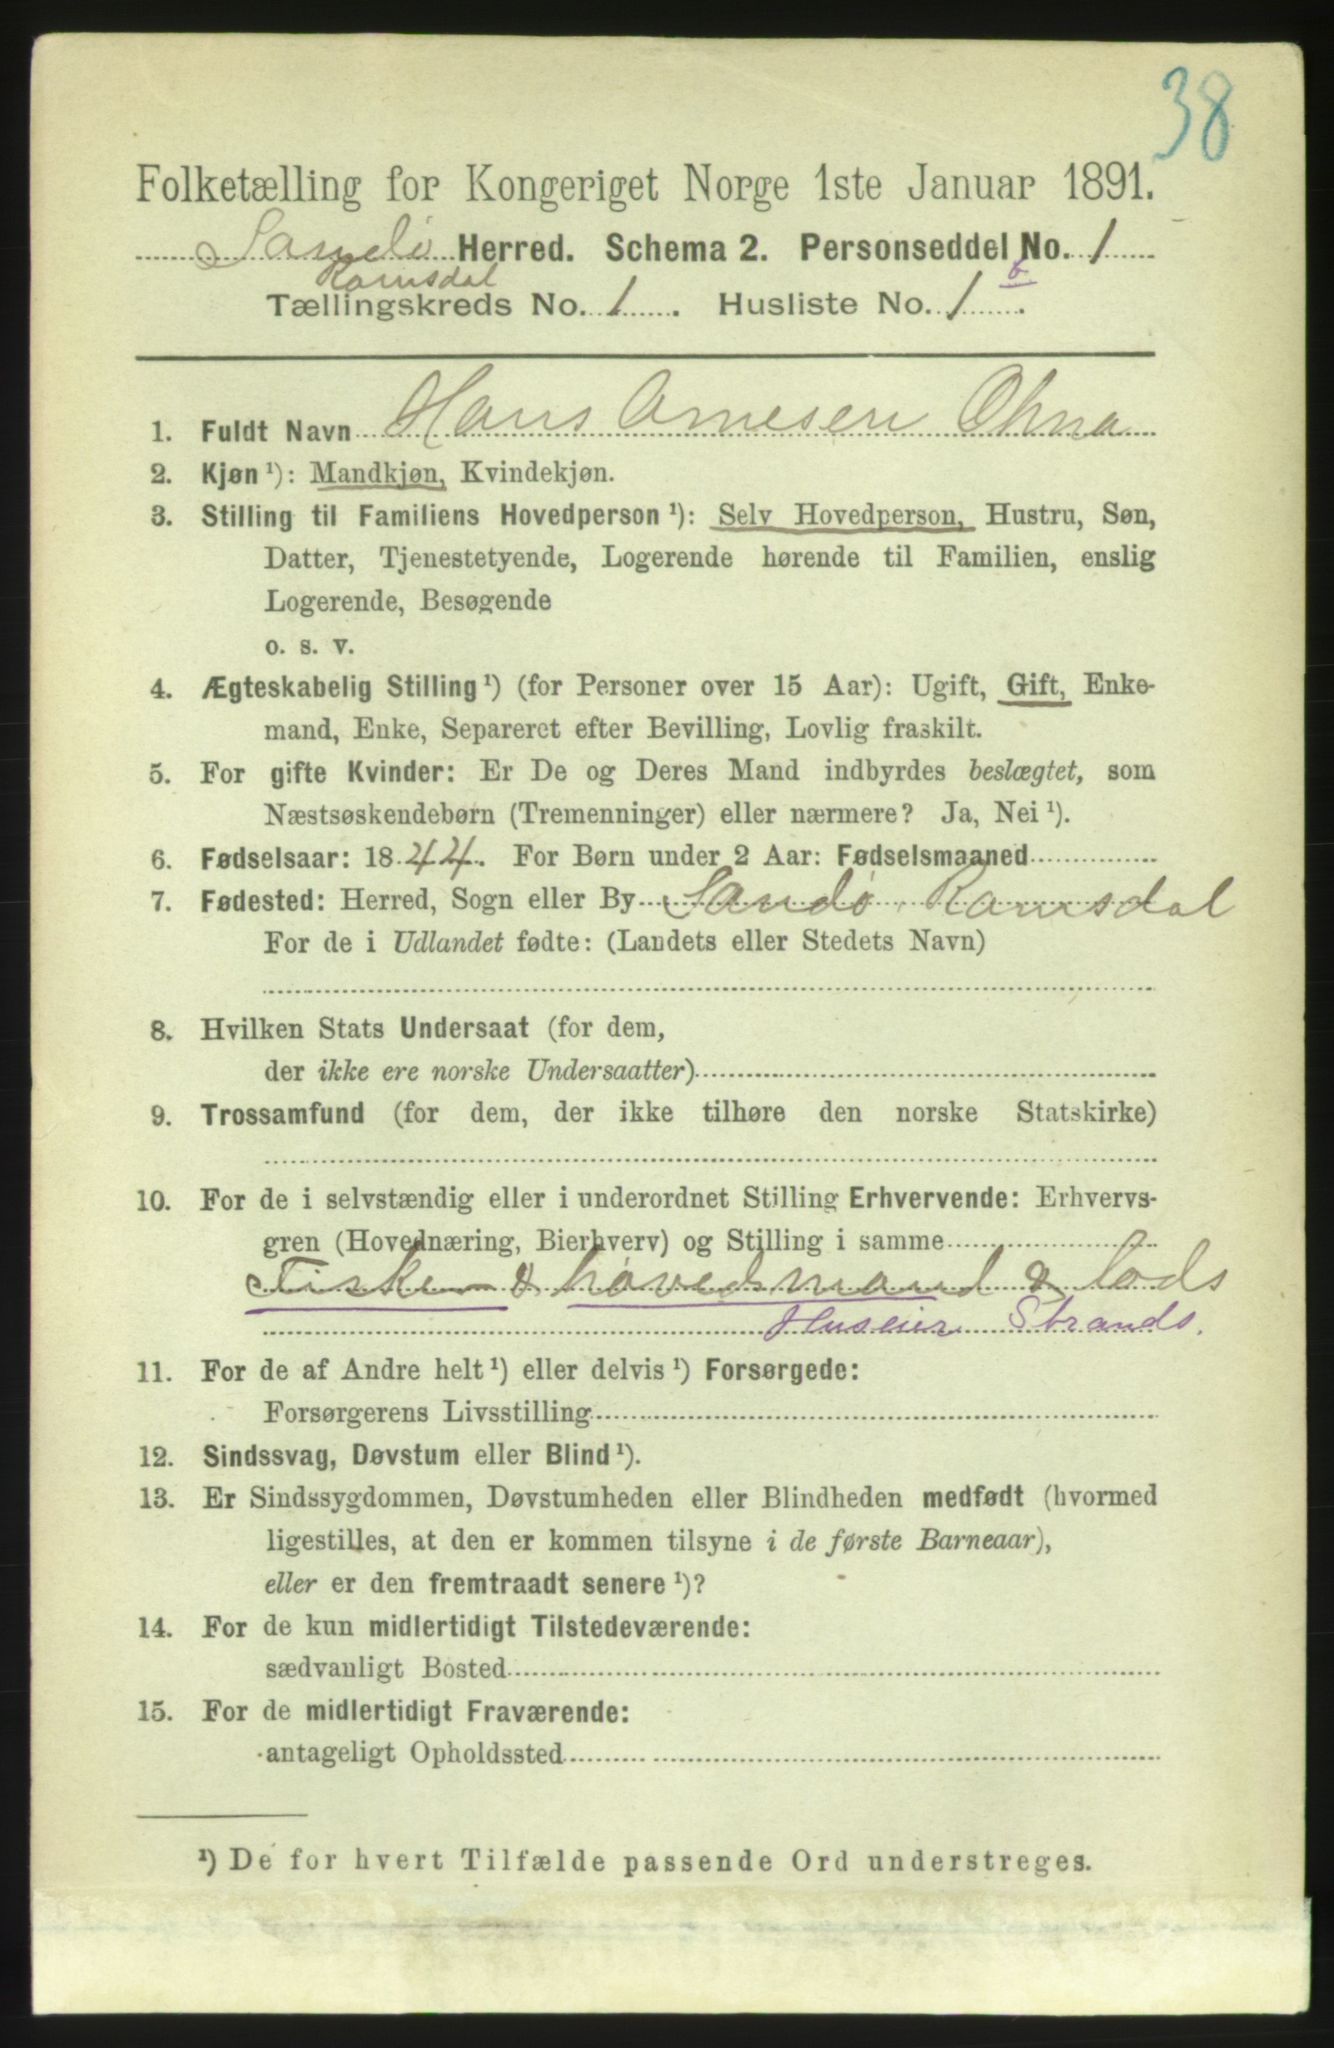 38
Folketælling for Kongeriget Norge 1ste Januar 1891.
Sandö Herred. Schema 2. Personseddel No. 1
Romsdal
Tællingskreds No. 1. Husliste No. 1 b.
1. Fuldt Navn Hans Arnesen Ohna
2. Kjøn ¹): Mandkjøn, Kvindekjøn.
3. Stilling til Familiens Hovedperson ¹): Selv Hovedperson, Hustru, Søn,
Datter, Tjenestetyende, Logerende hørende til Familien, enslig
Logerende, Besøgende
o. s. v.
4. Ægteskabelig Stilling ¹) (for Personer over 15 Aar): Ugift, Gift, Enke-
mand, Enke, Separeret efter Bevilling, Lovlig fraskilt.
5. For gifte Kvinder: Er De og Deres Mand indbyrdes beslægtet, som
Næstsøskendebørn (Tremenninger) eller nærmere? Ja, Nei ¹).
6. Fødselsaar: 1844. For Børn under 2 Aar: Fødselsmaaned
7. Fødested: Herred, Sogn eller By Sandö Romsdal
For de i Udlandet fødte: (Landets eller Stedets Navn)
8. Hvilken Stats Undersaat (for dem,
der ikke ere norske Undersaatter)
9. Trossamfund (for dem, der ikke tilhøre den norske Statskirke)
10. For de i selvstændig eller i underordnet Stilling Erhvervende: Erhvervs-
gren (Hovednæring, Bierhverv) og Stilling i samme
Fisker & høvedsmand & lods
Huseier Strands.
11. For de af Andre helt ¹) eller delvis ¹) Forsørgede:
Forsørgerens Livsstilling
12. Sindssvag, Døvstum eller Blind ¹).
13. Er Sindssygdommen, Døvstumheden eller Blindheden medfødt (hvormed
ligestilles, at den er kommen tilsyne i de første Barneaar),
eller er den fremtraadt senere ¹)?
14. For de kun midlertidigt Tilstedeværende:
sædvanligt Bosted
15. For de midlertidigt Fraværende:
antageligt Opholdssted
¹) De for hvert Tilfælde passende Ord understreges.